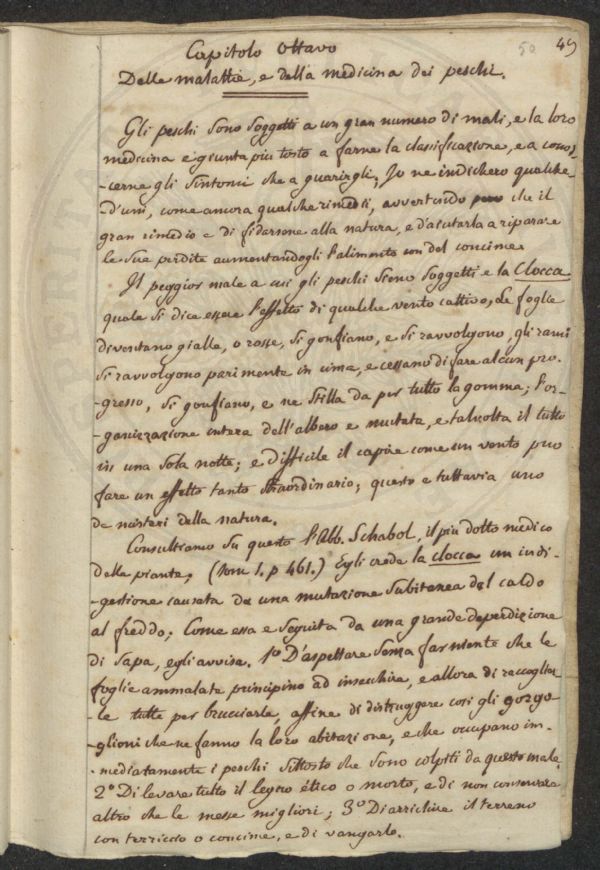 50 49
Capitolo Ottavo
Delle malattie, e della medicina dei peschi.
Gli peschi sono soggetti a un gran numero di mali, e la loro
medicina e giunta piu tosto a farne la classificazione, e a conos-
-cerne gli sintomi che a guarirgli; Io ne indichero qualche-
-d'uni, come ancora qualche rimedi, avvertendo pero che il
gran rimedio e di fidarsene alla natura, e d'aiutarla a riparare
le sue perdite aumentandogli l'alimento con del concime.
Il peggior male a cui gli peschi sieno soggetti e la Clocca
quale si dice essere l'effetto di qualche vento cattivo, Le foglie
diventano gialle, o rosse, si gonfiano, e si ravvolgono, gli rami
si ravvolgono parimente in cima, e cessano di fare alcun pro-
-gresso, si gonfiano, e ne stilla da per tutto la gomma; l'or-
-ganizzazione intera dell'albero e mutata, e talvolta il tutto
in una sola notte; e difficile il capire come un vento puo
fare un effetto tanto straordinario; questo e tuttavia uno
de misteri della natura.
Consultiamo su questo l'Abb. Schabol, il piu dotto medico
delle piante, (tom 1. p 461.) Egli crede la clocca un indi-
-gestione causata da una mutazione subitanea del caldo
al freddo; Come essa e seguita da una grande deperdizione
di sapa, egli avvisa. 1º D'aspettare senza far niente che le
foglie ammalate principino ad insecchire, e allora di raccoglier-
-le tutte per brucciarle, affine di distruggere cosi gli gorgo-
-glioni che ne fanno la loro abitazione, e che occupano im-
-mediatamente i peschi sittosto che sono colpiti da questo male
2º Di levare tutto il legno ético o morto, e di non conservare
altro che le messe migliori; 3º Di arrichire il terreno
con terriccio o concime, e di vangarlo.